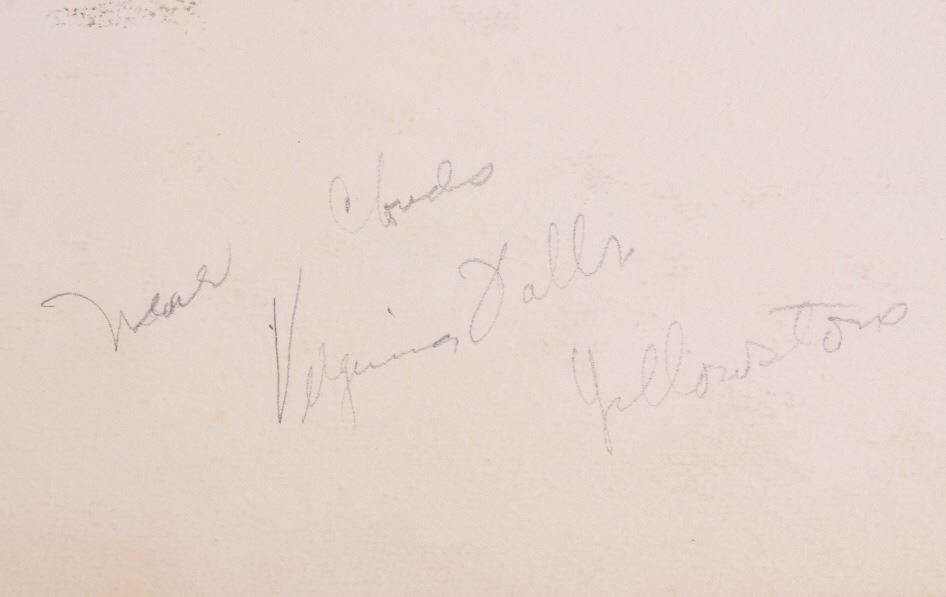 Clouds
near Virginia Falls
Yellowstone